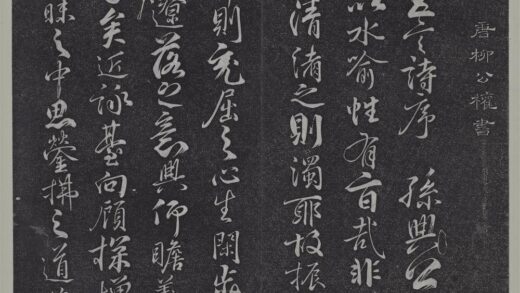 唐柳公權書
五言詩序 孫興公
以水喻性有旨哉非
清淆之則濁耶故振
則充屈之心生閑步
遼落之意興仰瞻羲
矣近詠臺向顧探增
昧之中思瑩拂之道